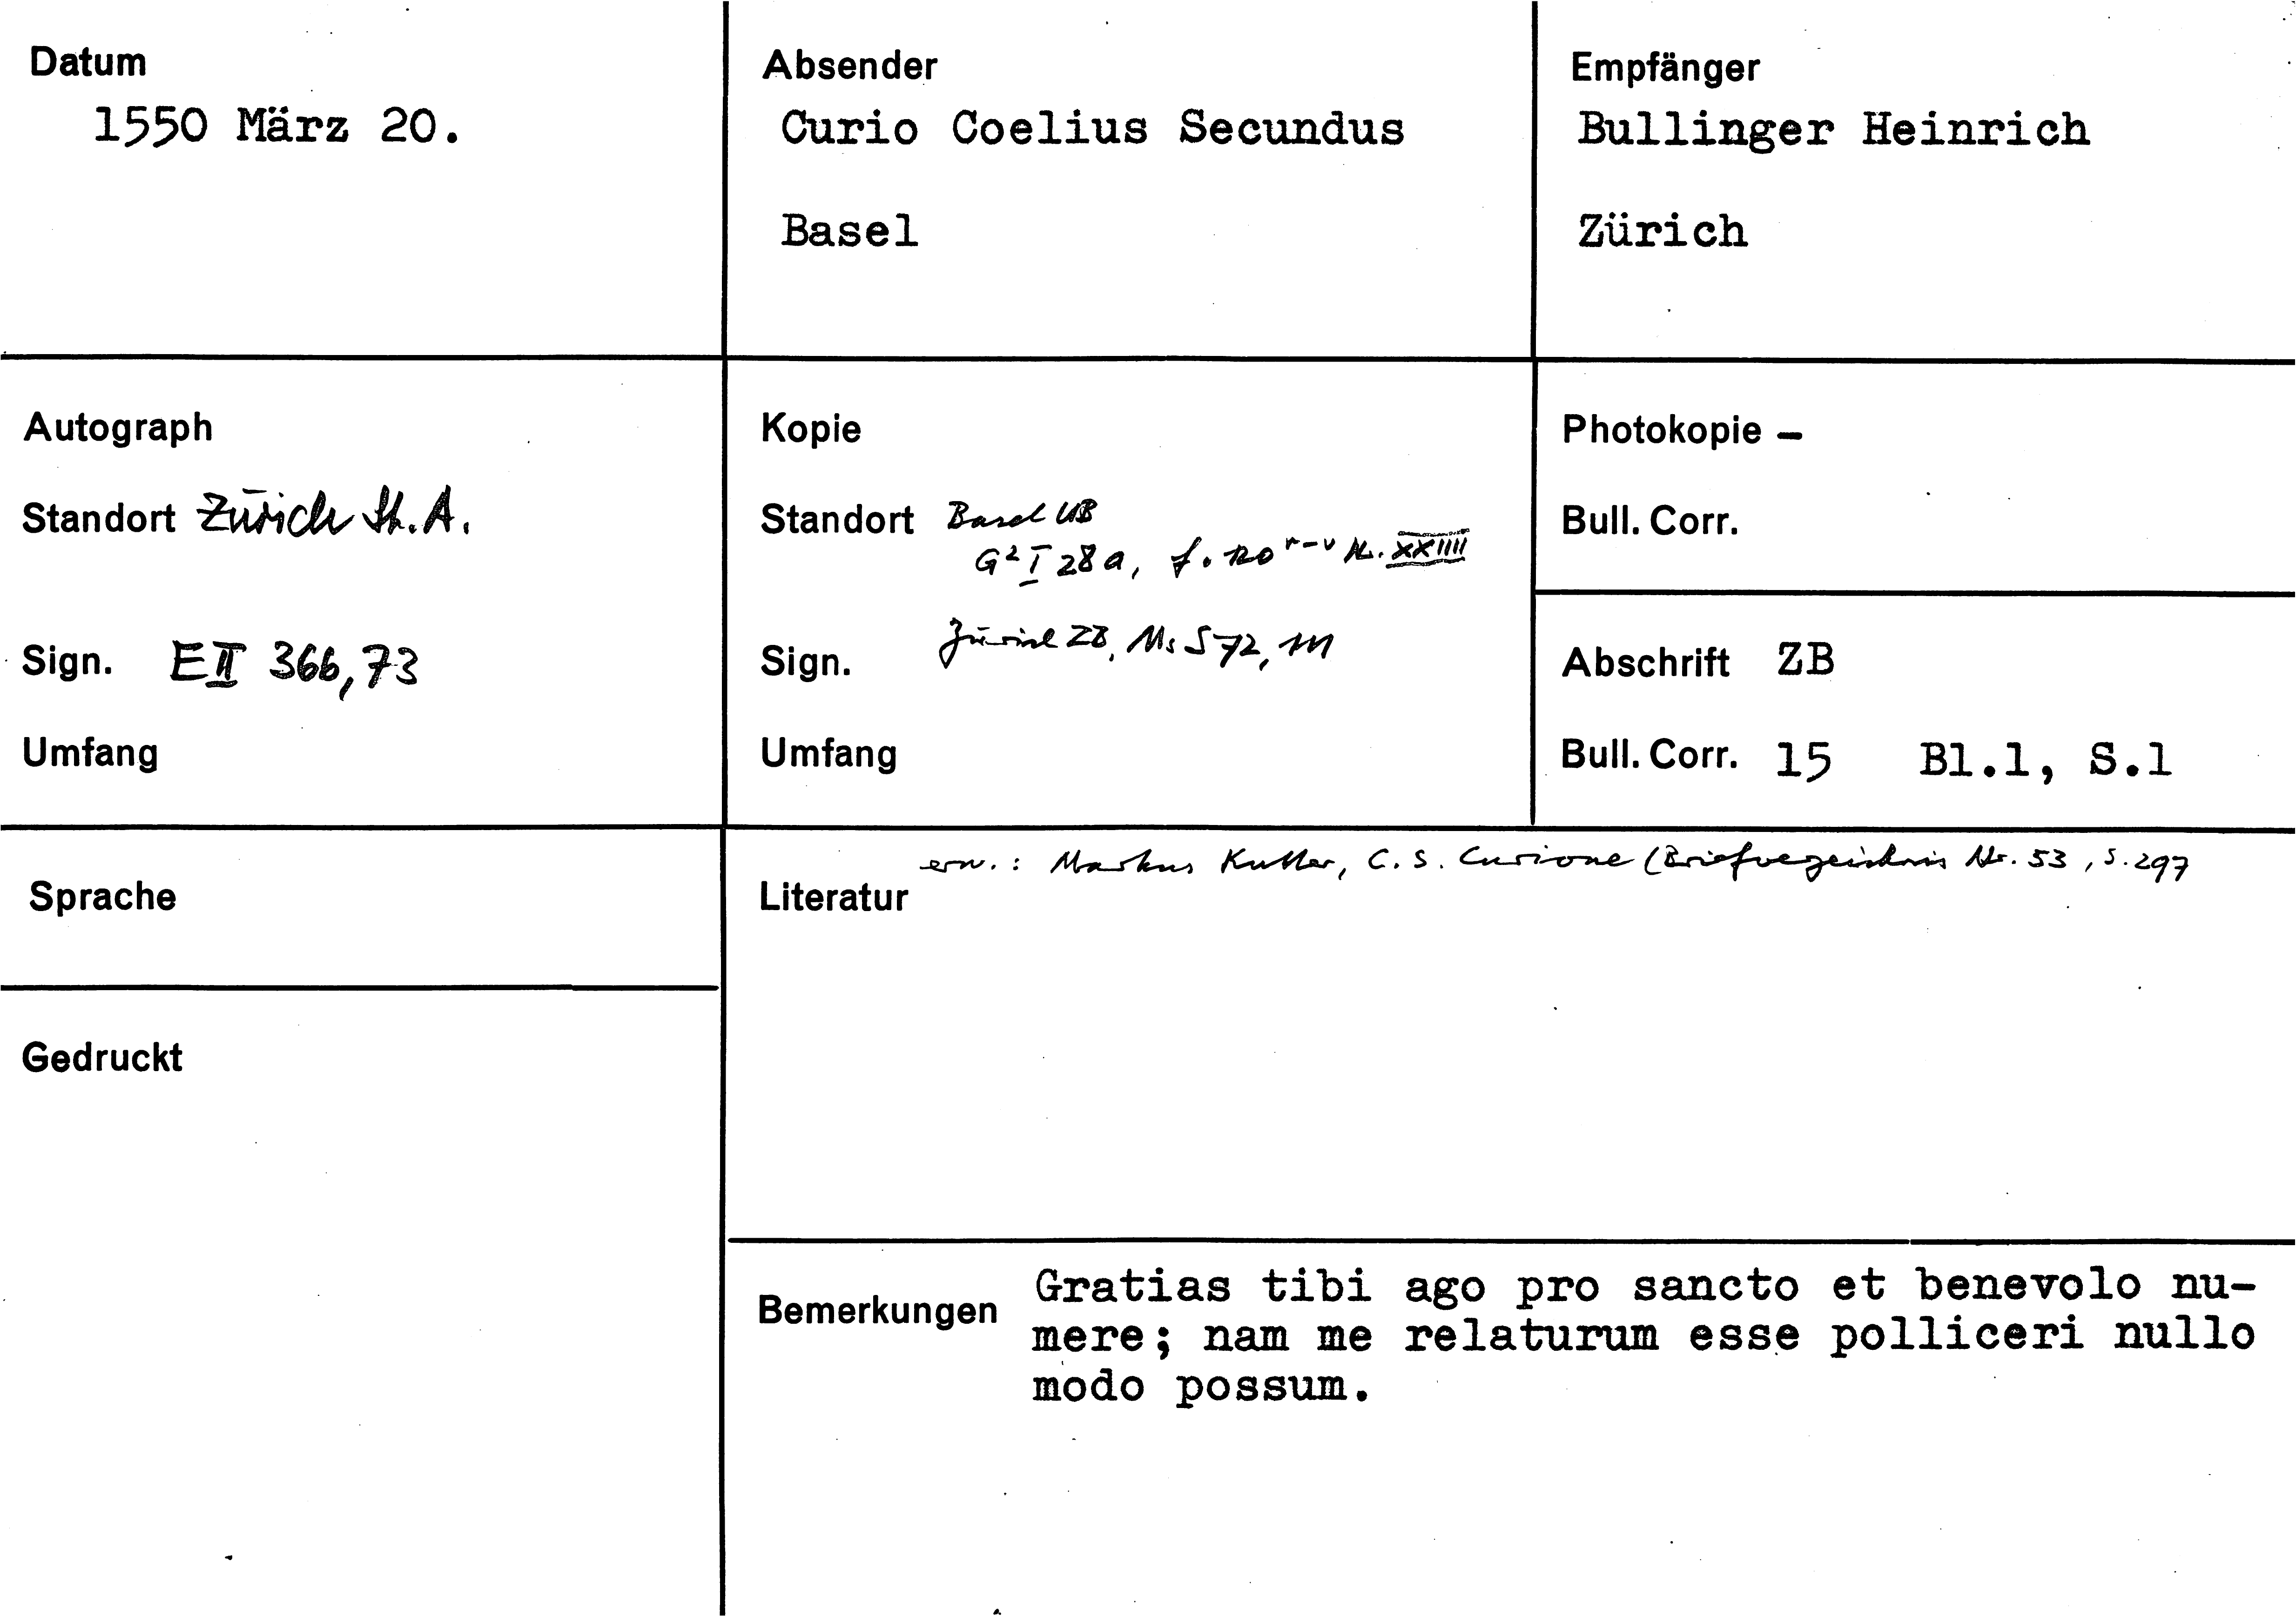 Datum
1550 März 20.
Absender
Curio Coelius Secundus
Basel
Empfänger
Bullinger Heinrich
Zürich
Autograph
Standort Zürich St.A.
Sign. EII 366,73
Umfang
Kopie
Standort Basel UB
G² I 28a, f. 120 r-v Nr. XXIIII
Sign. Zürich ZB, Ms S 72, 111
Umfang
Photokopie -
Bull. Corr.
Abschrift ZB
Bull. Corr. 15 Bl.1, S.1
Sprache
Gedruckt
Literatur erw.: Markus Kutter, C.S. Curione (Briefverzeichnis Nr. 53, S. 297
Bemerkungen Gratias tibi ago pro sancto et benevolo nu-
mere; nam me relaturum esse polliceri nullo
modo possum.